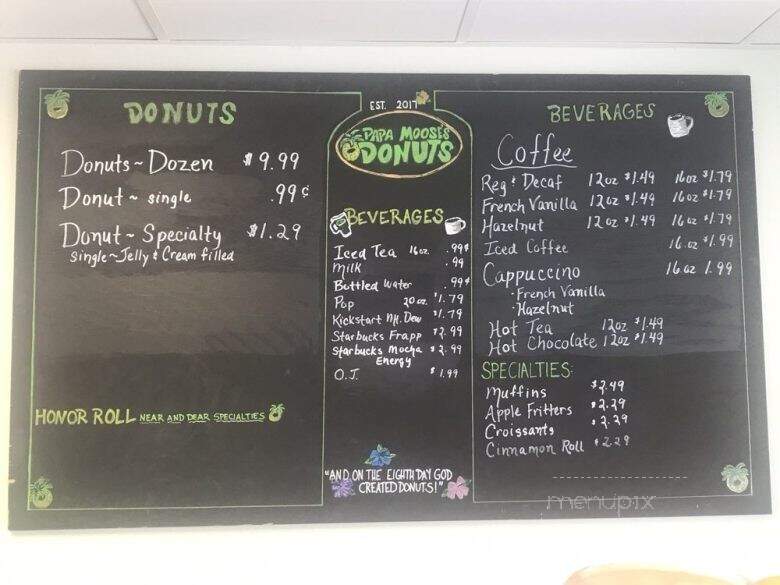 DONUTS
Donuts ~ Dozen $9.99
Donut ~ single .99¢
Donut ~ Specialty $1.29
Single ~ Jelly & Cream filled
HONOR ROLL NEAR AND DEAR SPECIALTIES
EST. 2017
PAPA MOOSE'S
DONUTS
BEVERAGES
Iced Tea 16oz. .99¢
Milk .99
Bottled Water .99¢
Pop 20oz. $1.79
Kickstart Mt. Dew $1.79
Starbucks Frapp $2.99
Starbucks Mocha $2.99
Energy
O.J. $1.99
"AND ON THE EIGHTH DAY GOD
CREATED DONUTS!"
BEVERAGES
Coffee
Reg & Decaf 12oz $1.49 16oz $1.79
French Vanilla 12oz $1.49 16oz $1.79
Hazelnut 12oz $1.49 16oz $1.79
Iced Coffee 16.oz $1.99
Cappuccino 16oz 1.99
• French Vanilla
• Hazelnut
Hot Tea 12oz $1.49
Hot Chocolate 12oz $1.49
SPECIALTIES:
Muffins $2.49
Apple Fritters $2.29
Croissants $2.29
Cinnamon Roll $2.29
menupix